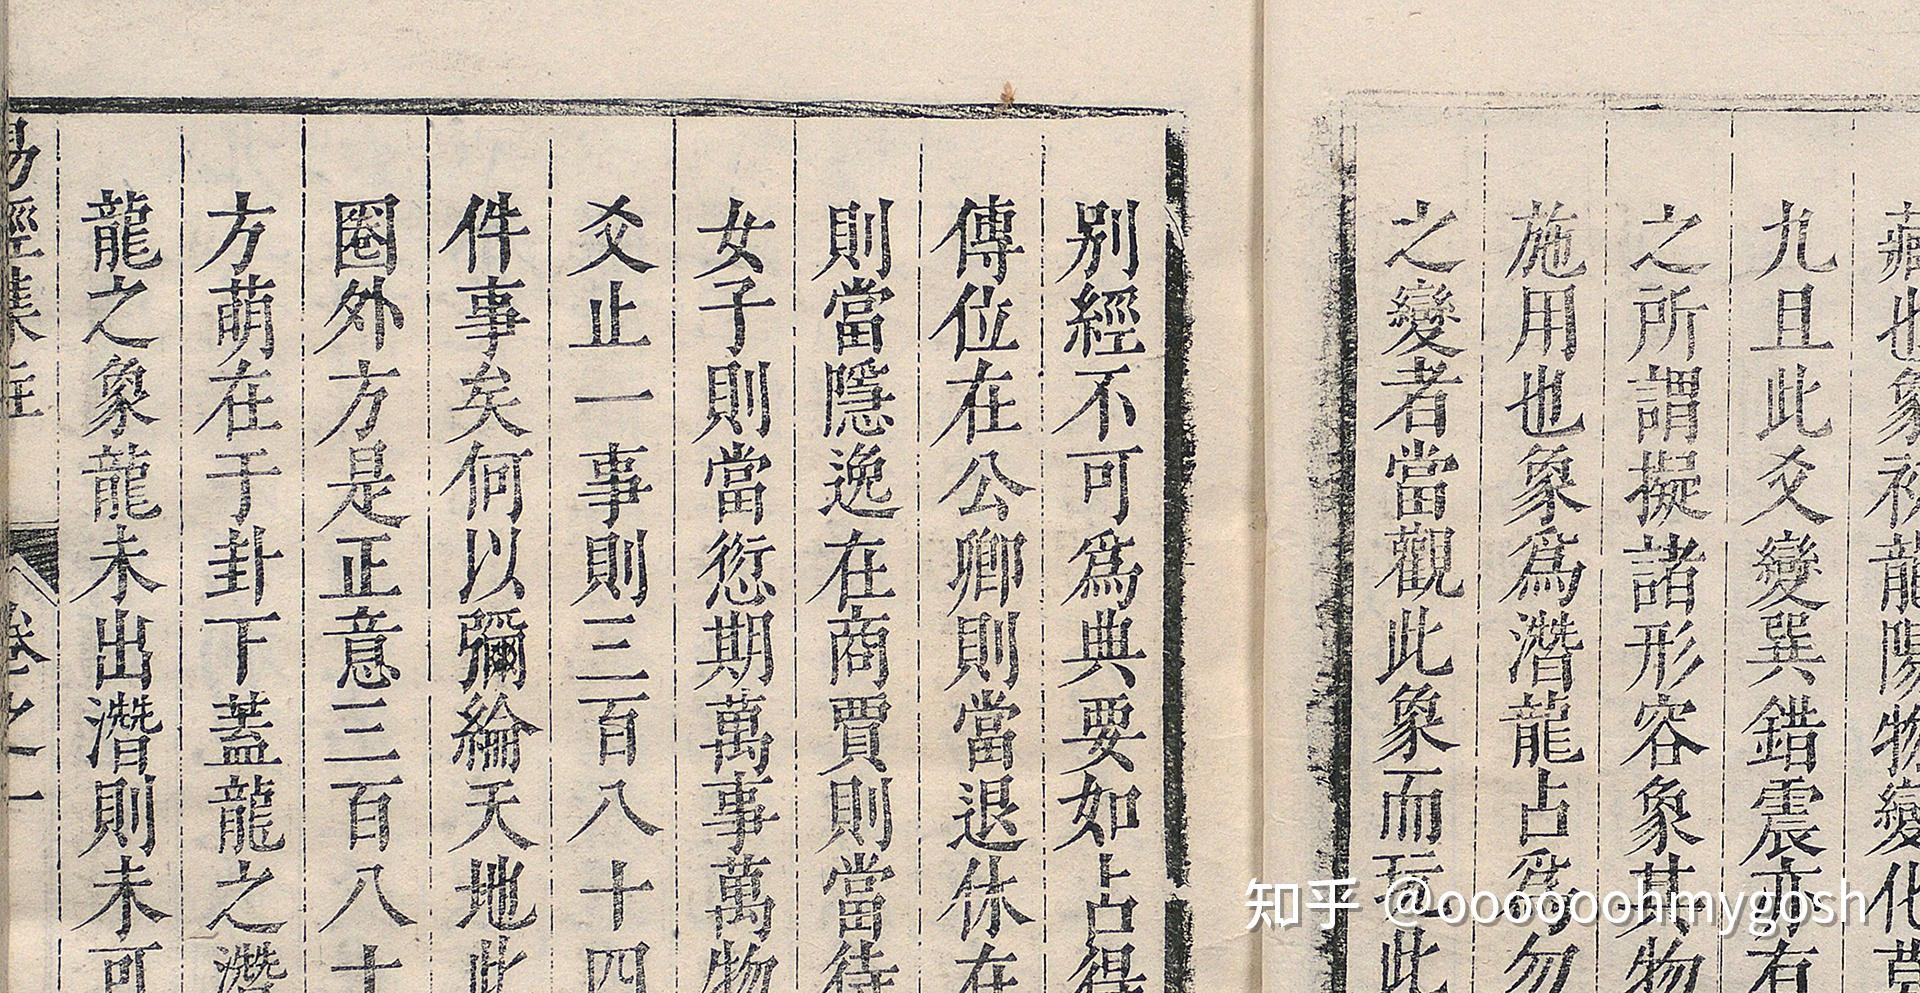 藏也象初龍陽物變化莫
九且此爻變巽錯震亦有
之所謂擬諸形容象其物
施用也象為潛龍占為勿
之變者當觀此象而玩此
别經不可為典要如占得
傳位在公卿則當退休在
則當隱逸在商賈則當待
女子則當愆期萬事萬物
爻止一事則三百八十四
件事矣何以彌綸天地此
圈外方是正意三百八十
方萌在于卦下蓋龍之潛
龍之象龍未出潛則未可
易經集註 卷之一
知乎 @ooooooohmygosh